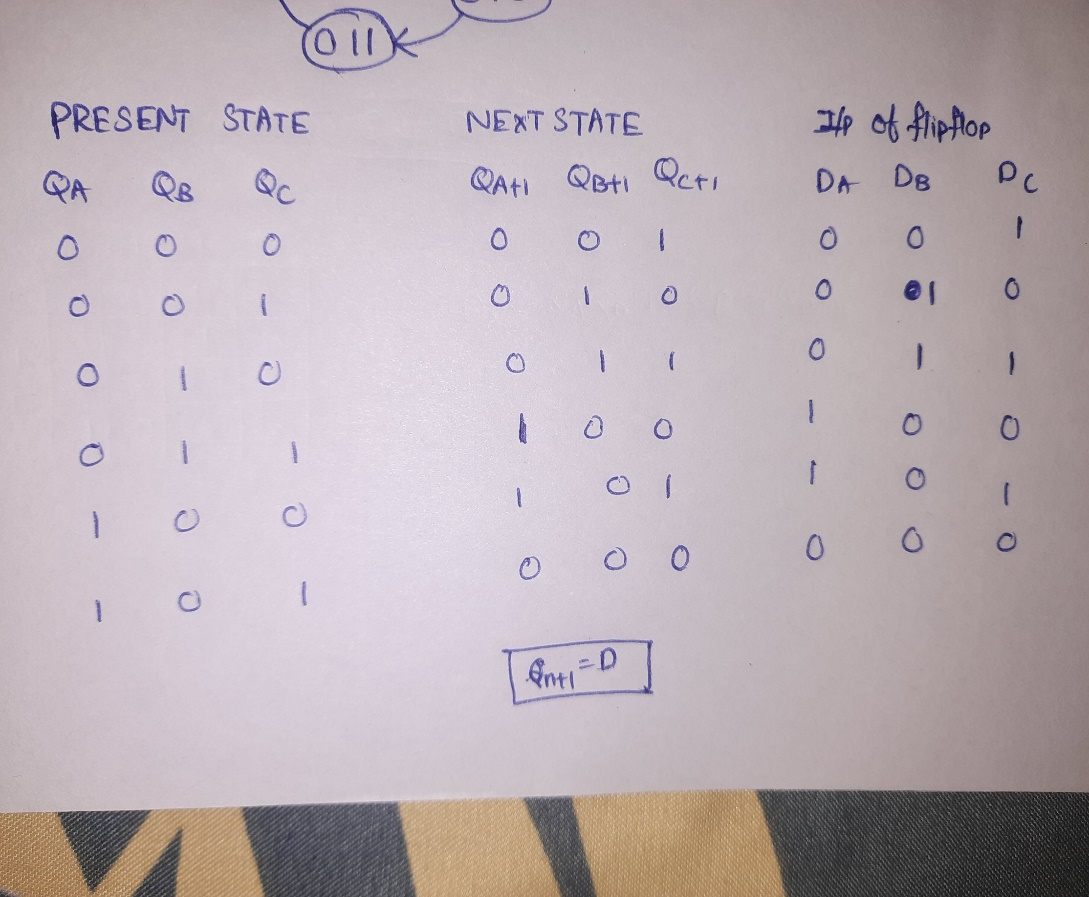 011
PRESENT STATE NEXT STATE I/p of flipflop
QA QB QC QA+1 QB+1 QC+1 DA DB DC
0 0 0 0 0 1 0 0 1
0 0 1 0 1 0 0 1 0
0 1 0 0 1 1 0 1 1
0 1 1 1 0 0 1 0 0
1 0 0 1 0 1 1 0 1
1 0 1 0 0 0 0 0 0
Qn+1 = D